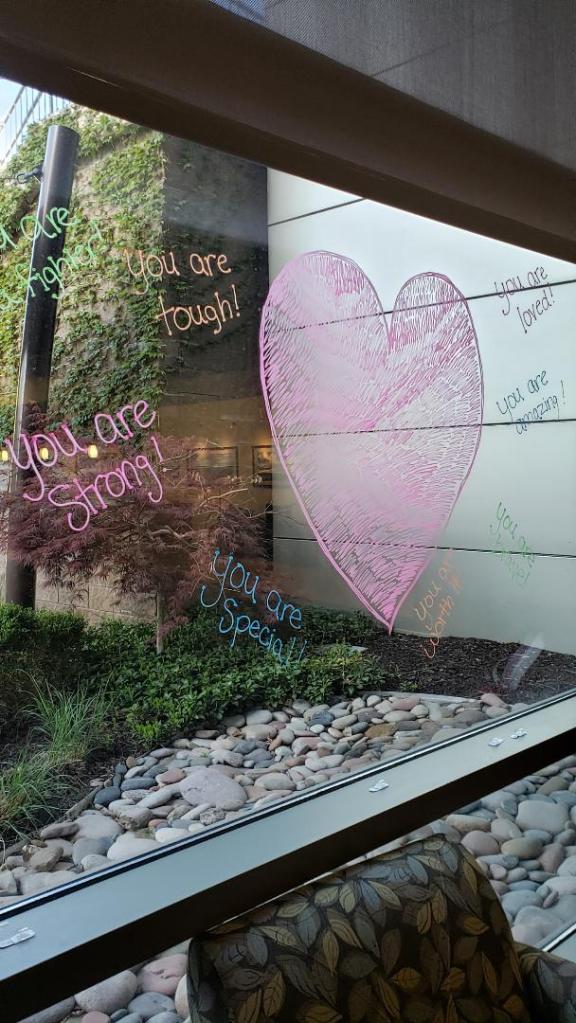 are
fighter!
you are
tough!
you are
Strong!
you are
Special!
you are
loved!
you are
amazing!
you are
you are
worth it!